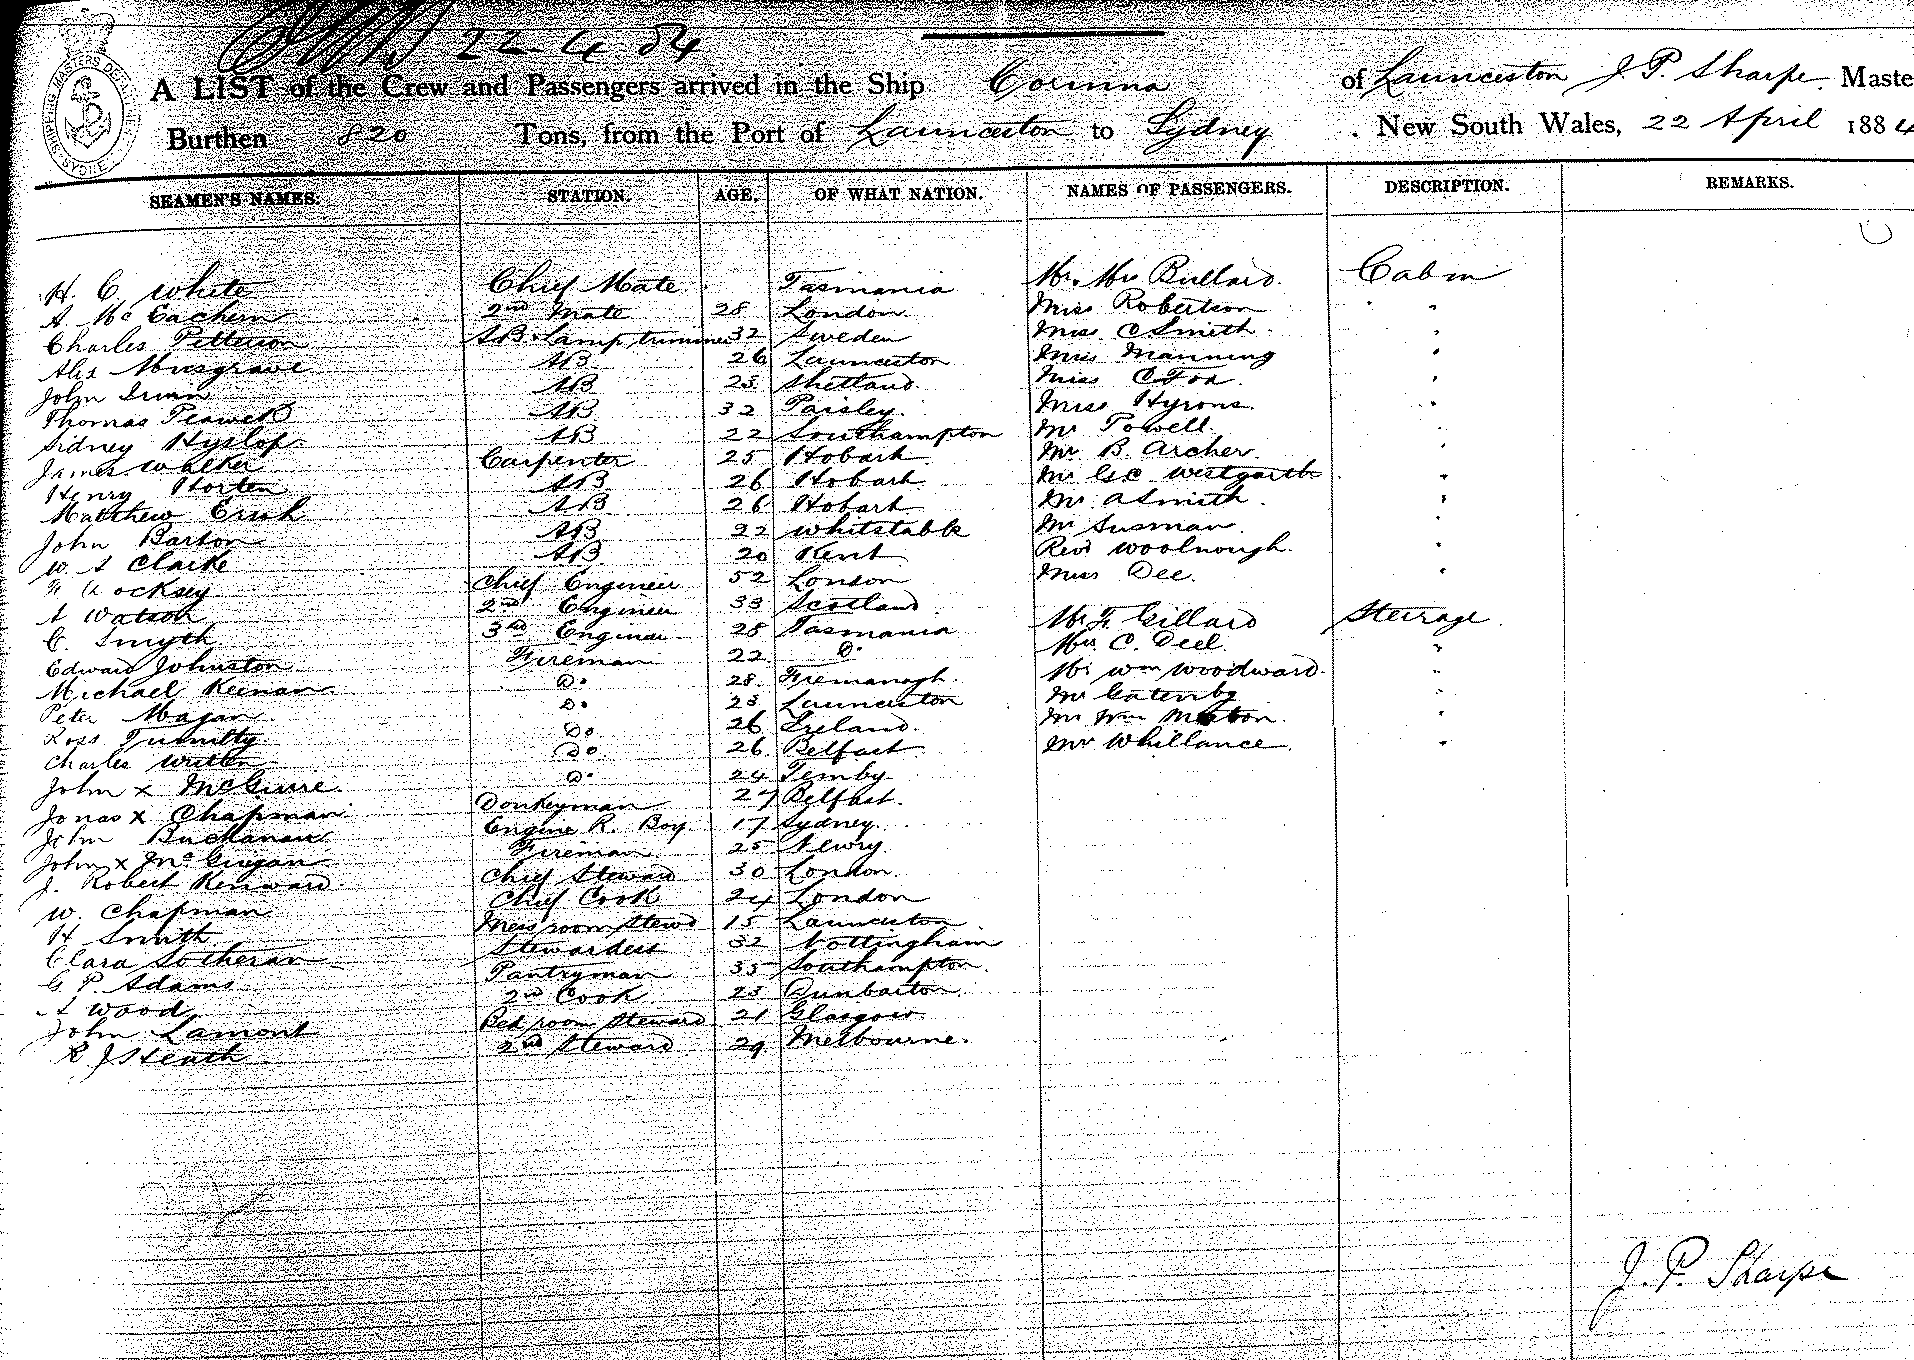 22 4 84
A LIST of the Crew and Passengers arrived in the Ship Corinna of Launceston J. P. Sharpe. Maste
Burthen 820 Tons, from the Port of Launceston to Sydney . New South Wales, 22 April 1884
SEAMEN'S NAMES. STATION. AGE. OF WHAT NATION. NAMES OF PASSENGERS. DESCRIPTION. REMARKS.
H. C. White Chief Mate Tasmania Mr. Mrs Bullard. Cabin
A McEachern 2nd Mate 28 London Miss Robertson "
Charles Petterson AB & Lamp trimmer 32 Sweden Miss C Smith "
Alex Musgrave AB 26 Launceston Miss Manning "
John AB 25 Shetland Miss C Fox "
Thomas AB 32 Paisley Miss Hyrons "
Sidney Hyslop AB 22 Southampton Mr Towell "
James Walker Carpenter 25 Hobart Mr B. Archer "
Henry Horten AB 26 Hobart Mr G. C. Westgarth "
Matthew AB 26 Hobart Mr A Smith "
John Barton AB 22 Whitstable Mr Susman "
W. S Clarke AB 20 Kent Revd Woolnough. "
Chief Engineer 52 London Miss Dee. "
A Watson 2nd Engineer 33 Scotland
C. Smyth 3rd Engineer 28 Tasmania Mr F. Gillard Steerage.
Edward Johnston Fireman 22 Do Mrs C. Deel "
Michael Keenan Do 28. Fremanagh. Mr Wm Woodward. "
Peter Magan Do 23 Launceston Mr Gatenby "
Ross Tumilty Do 26 Ireland. Mr Wm "
Charles Do 26 Belfast Mr Whillance. "
John x McGuire Do 24 Temby
Jonas x Chapman Donkeyman 27 Belfast.
John Buchanan Engine R. Boy 17 Sydney.
John x McGuigan Fireman 25 Newry.
J. Robert Kenward Chief Steward 30 London.
W. Chapman Chief Cook 24 London
H Smith Mess room Stewd 15 Launceston
Clara Sotheran Stewardess 32 Nottingham
G P. Adams Pantryman 35 Southampton.
A Wood 2nd Cook 23 Dunbarton.
John Lamont Bed room Steward 21 Glasgow
R J Heath 2nd Steward 29 Melbourne.
J. P. Sharpe